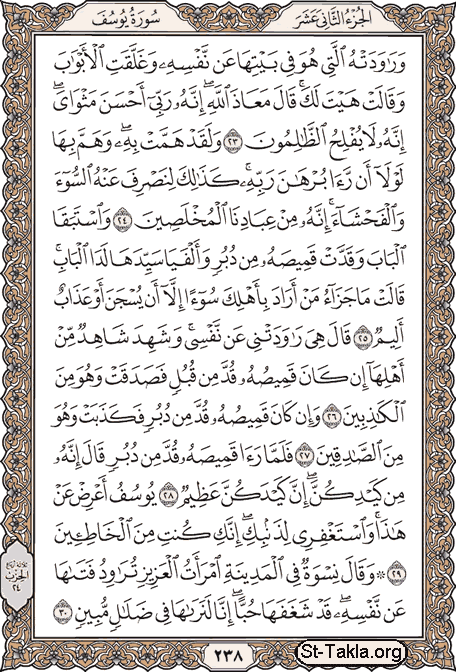 الجزء الثاني عشر
سورة يوسف
وَرَٰوَدَتْهُ ٱلَّتِي هُوَ فِي بَيْتِهَا عَن نَّفْسِهِۦ وَغَلَّقَتِ ٱلْأَبْوَٰبَ
وَقَالَتْ هَيْتَ لَكَ ۚ قَالَ مَعَاذَ ٱللَّهِ ۖ إِنَّهُۥ رَبِّيٓ أَحْسَنَ مَثْوَايَ ۖ
إِنَّهُۥ لَا يُفْلِحُ ٱلظَّٰلِمُونَ ٢٣ وَلَقَدْ هَمَّتْ بِهِۦ ۖ وَهَمَّ بِهَا
لَوْلَآ أَن رَّءَا بُرْهَٰنَ رَبِّهِۦ ۚ كَذَٰلِكَ لِنَصْرِفَ عَنْهُ ٱلسُّوٓءَ
وَٱلْفَحْشَآءَ ۚ إِنَّهُۥ مِنْ عِبَادِنَا ٱلْمُخْلَصِينَ ٢٤ وَٱسْتَبَقَا
ٱلْبَابَ وَقَدَّتْ قَمِيصَهُۥ مِن دُبُرٍ وَأَلْفَيَا سَيِّدَهَا لَدَا ٱلْبَابِ ۚ
قَالَتْ مَا جَزَآءُ مَنْ أَرَادَ بِأَهْلِكَ سُوٓءًا إِلَّآ أَن يُسْجَنَ أَوْ عَذَابٌ
أَلِيمٌ ٢٥ قَالَ هِيَ رَٰوَدَتْنِي عَن نَّفْسِي ۚ وَشَهِدَ شَاهِدٌ مِّنْ
أَهْلِهَآ إِن كَانَ قَمِيصُهُۥ قُدَّ مِن قُبُلٍ فَصَدَقَتْ وَهُوَ مِنَ
ٱلْكَٰذِبِينَ ٢٦ وَإِن كَانَ قَمِيصُهُۥ قُدَّ مِن دُبُرٍ فَكَذَبَتْ وَهُوَ
مِنَ ٱلصَّٰدِقِينَ ٢٧ فَلَمَّا رَءَا قَمِيصَهُۥ قُدَّ مِن دُبُرٍ قَالَ إِنَّهُۥ
مِن كَيْدِكُنَّ ۖ إِنَّ كَيْدَكُنَّ عَظِيمٌ ٢٨ يُوسُفُ أَعْرِضْ عَنْ
هَٰذَا ۚ وَٱسْتَغْفِرِي لِذَنۢبِكِ ۖ إِنَّكِ كُنتِ مِنَ ٱلْخَاطِـِٔينَ
٢٩ ۞ وَقَالَ نِسْوَةٌ فِي ٱلْمَدِينَةِ ٱمْرَأَتُ ٱلْعَزِيزِ تُرَٰوِدُ فَتَىٰهَا
عَن نَّفْسِهِۦ ۖ قَدْ شَغَفَهَا حُبًّا ۖ إِنَّا لَنَرَىٰهَا فِي ضَلَٰلٍ مُّبِينٍ ٣٠
ثلاثة أرباع
الحزب
٢٤
٢٣٨
St-Takla.org